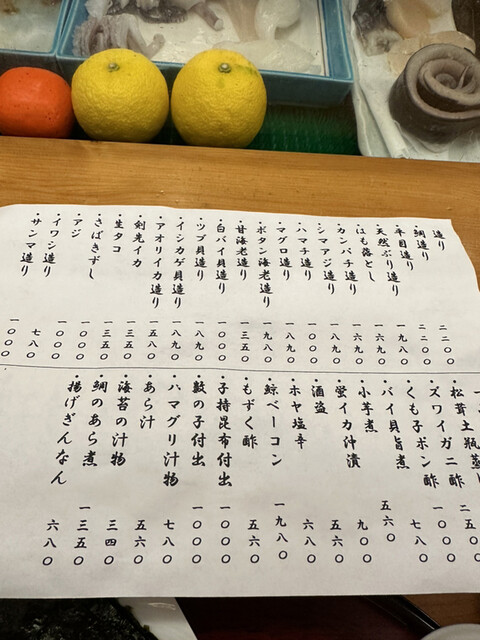 造り
・鯛造り 二二〇〇
・平目造り 二二〇〇
・天然ぶり造り 一九八〇
・はも落とし 一六九〇
・カンパチ造り 一六九〇
・シマアジ造り 一八九〇
・ハマチ造り 一〇〇〇
・マグロ造り 一八九〇
・ボタン海老造り 一九八〇
・甘海老造り 一三五〇
・白バイ貝造り 一〇〇〇
・ツブ貝造り 一八九〇
・イシカゲ貝造り 一八九〇
・アオリイカ造り 一五八〇
・剣光イカ 一三五〇
・生タコ 一三五〇
・さばきずし 一〇〇〇
・アジ 一〇〇〇
・イワシ造り 七八〇
・サンマ造り 一〇〇〇
・松茸土瓶蒸し
・ズワイガニ酢 二五〇
・くも子ポン酢 一〇〇〇
・バイ貝旨煮 七八〇
・小芋煮 五六〇
・蛍イカ沖漬 九〇
・酒盗 五六〇
・ホヤ塩辛 六八〇
・鯨ベーコン 一九八〇
・もずく酢 五六〇
・子持昆布付出 一〇〇〇
・数の子付出 一〇〇〇
・ハマグリ汁物 七八〇
・あら汁 五六〇
・海苔の汁物 三四〇
・鯛のあら煮 一三五〇
・揚げぎんなん 六八〇